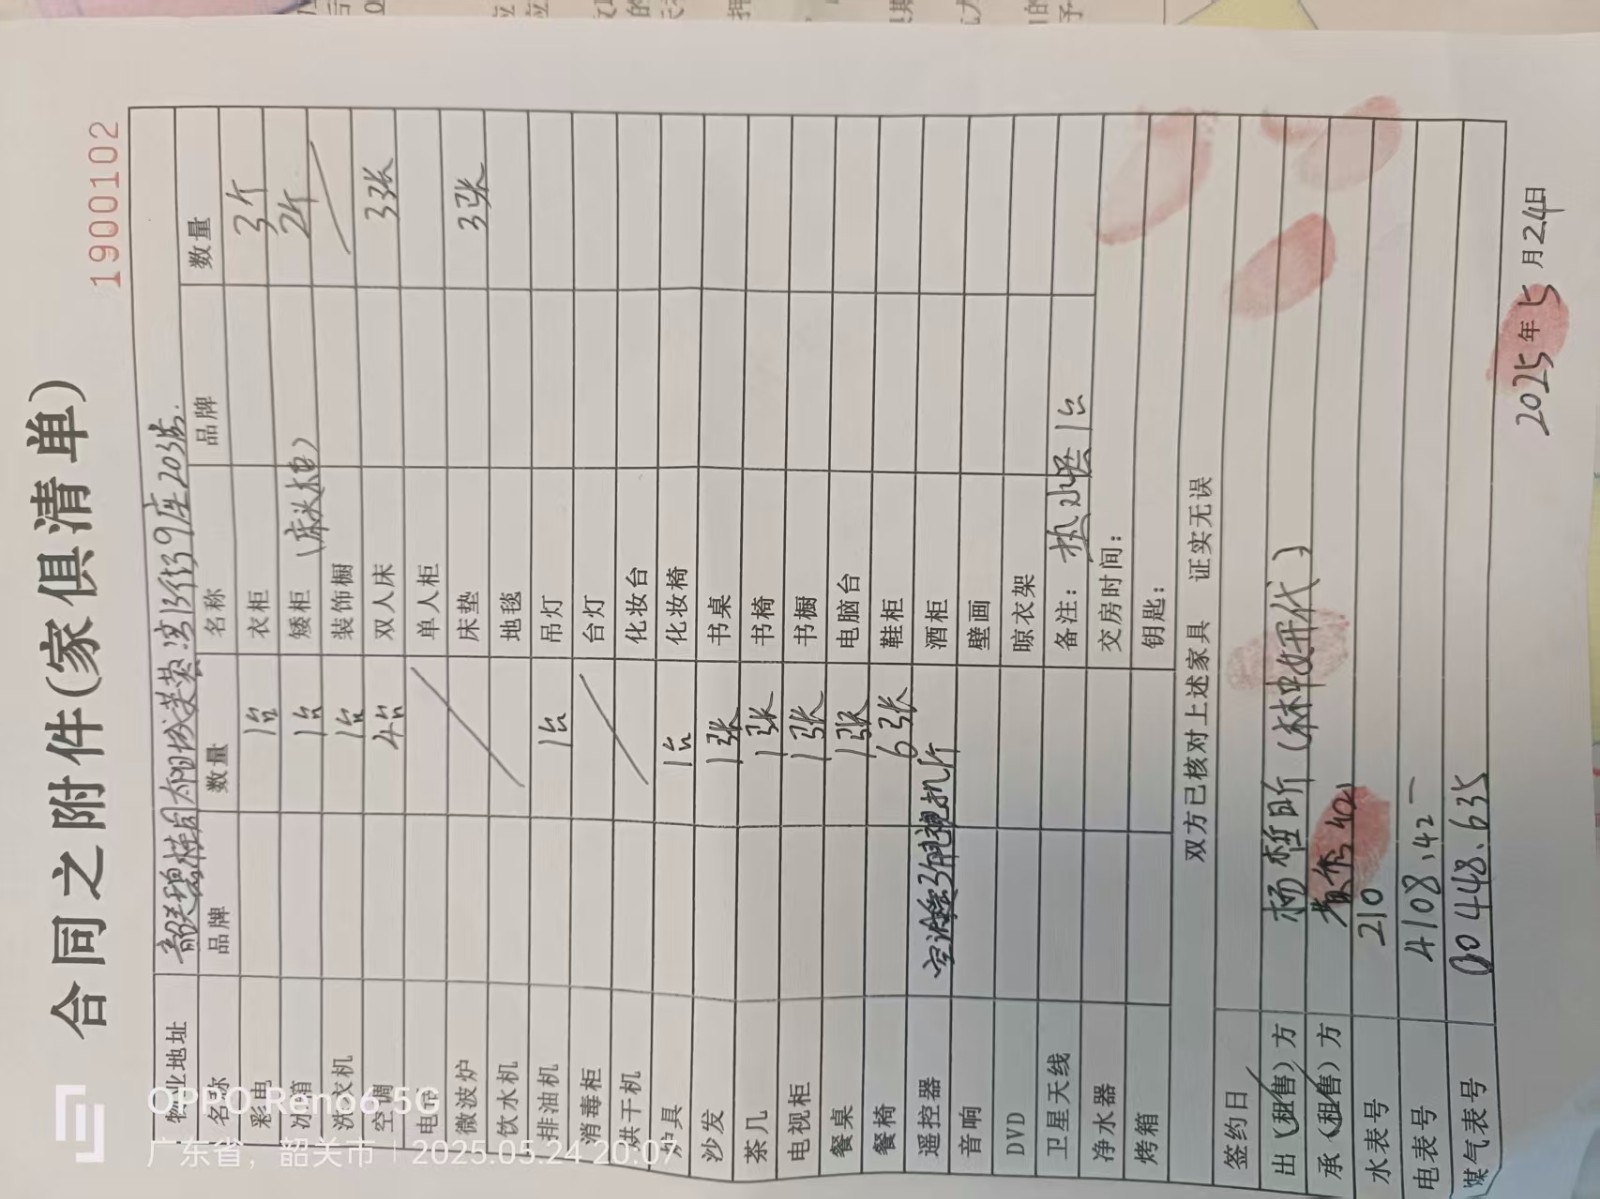 合同之附件(家俱清单)
1900102
物业地址 韶关碧桂园太阳城芙蓉湾3街9座203房.
名称 品牌 数量 名称 品牌 数量
彩电 1台 衣柜 3个
冰箱 1台 矮柜 (床头柜) 2个
洗衣机 1台 装饰橱
空调 4台 双人床 3张
单人柜
微波炉 床垫 3张
饮水机 地毯
排油机 1台 吊灯
消毒柜 台灯
烘干机 化妆台
炉具 1台 化妆椅
沙发 1张 书桌
茶几 1张 书椅
电视柜 1张 书橱
餐桌 1张 电脑台
餐椅 6张 鞋柜
遥控器 空调3 电视机1个 酒柜
音响 壁画
DVD 晾衣架
卫星天线 备注: 热水器1台
净水器 交房时间:
烤箱 钥匙:
双方已核对上述家具 证实无误
签约日
出(租售)方 (林中妍代)
承(租售)方
水表号 210
电表号 4108.42
煤气表号 448.635
2025年5月24日
OPPO Reno6 5G
广东省，韶关市 | 2025.05.24 20:07